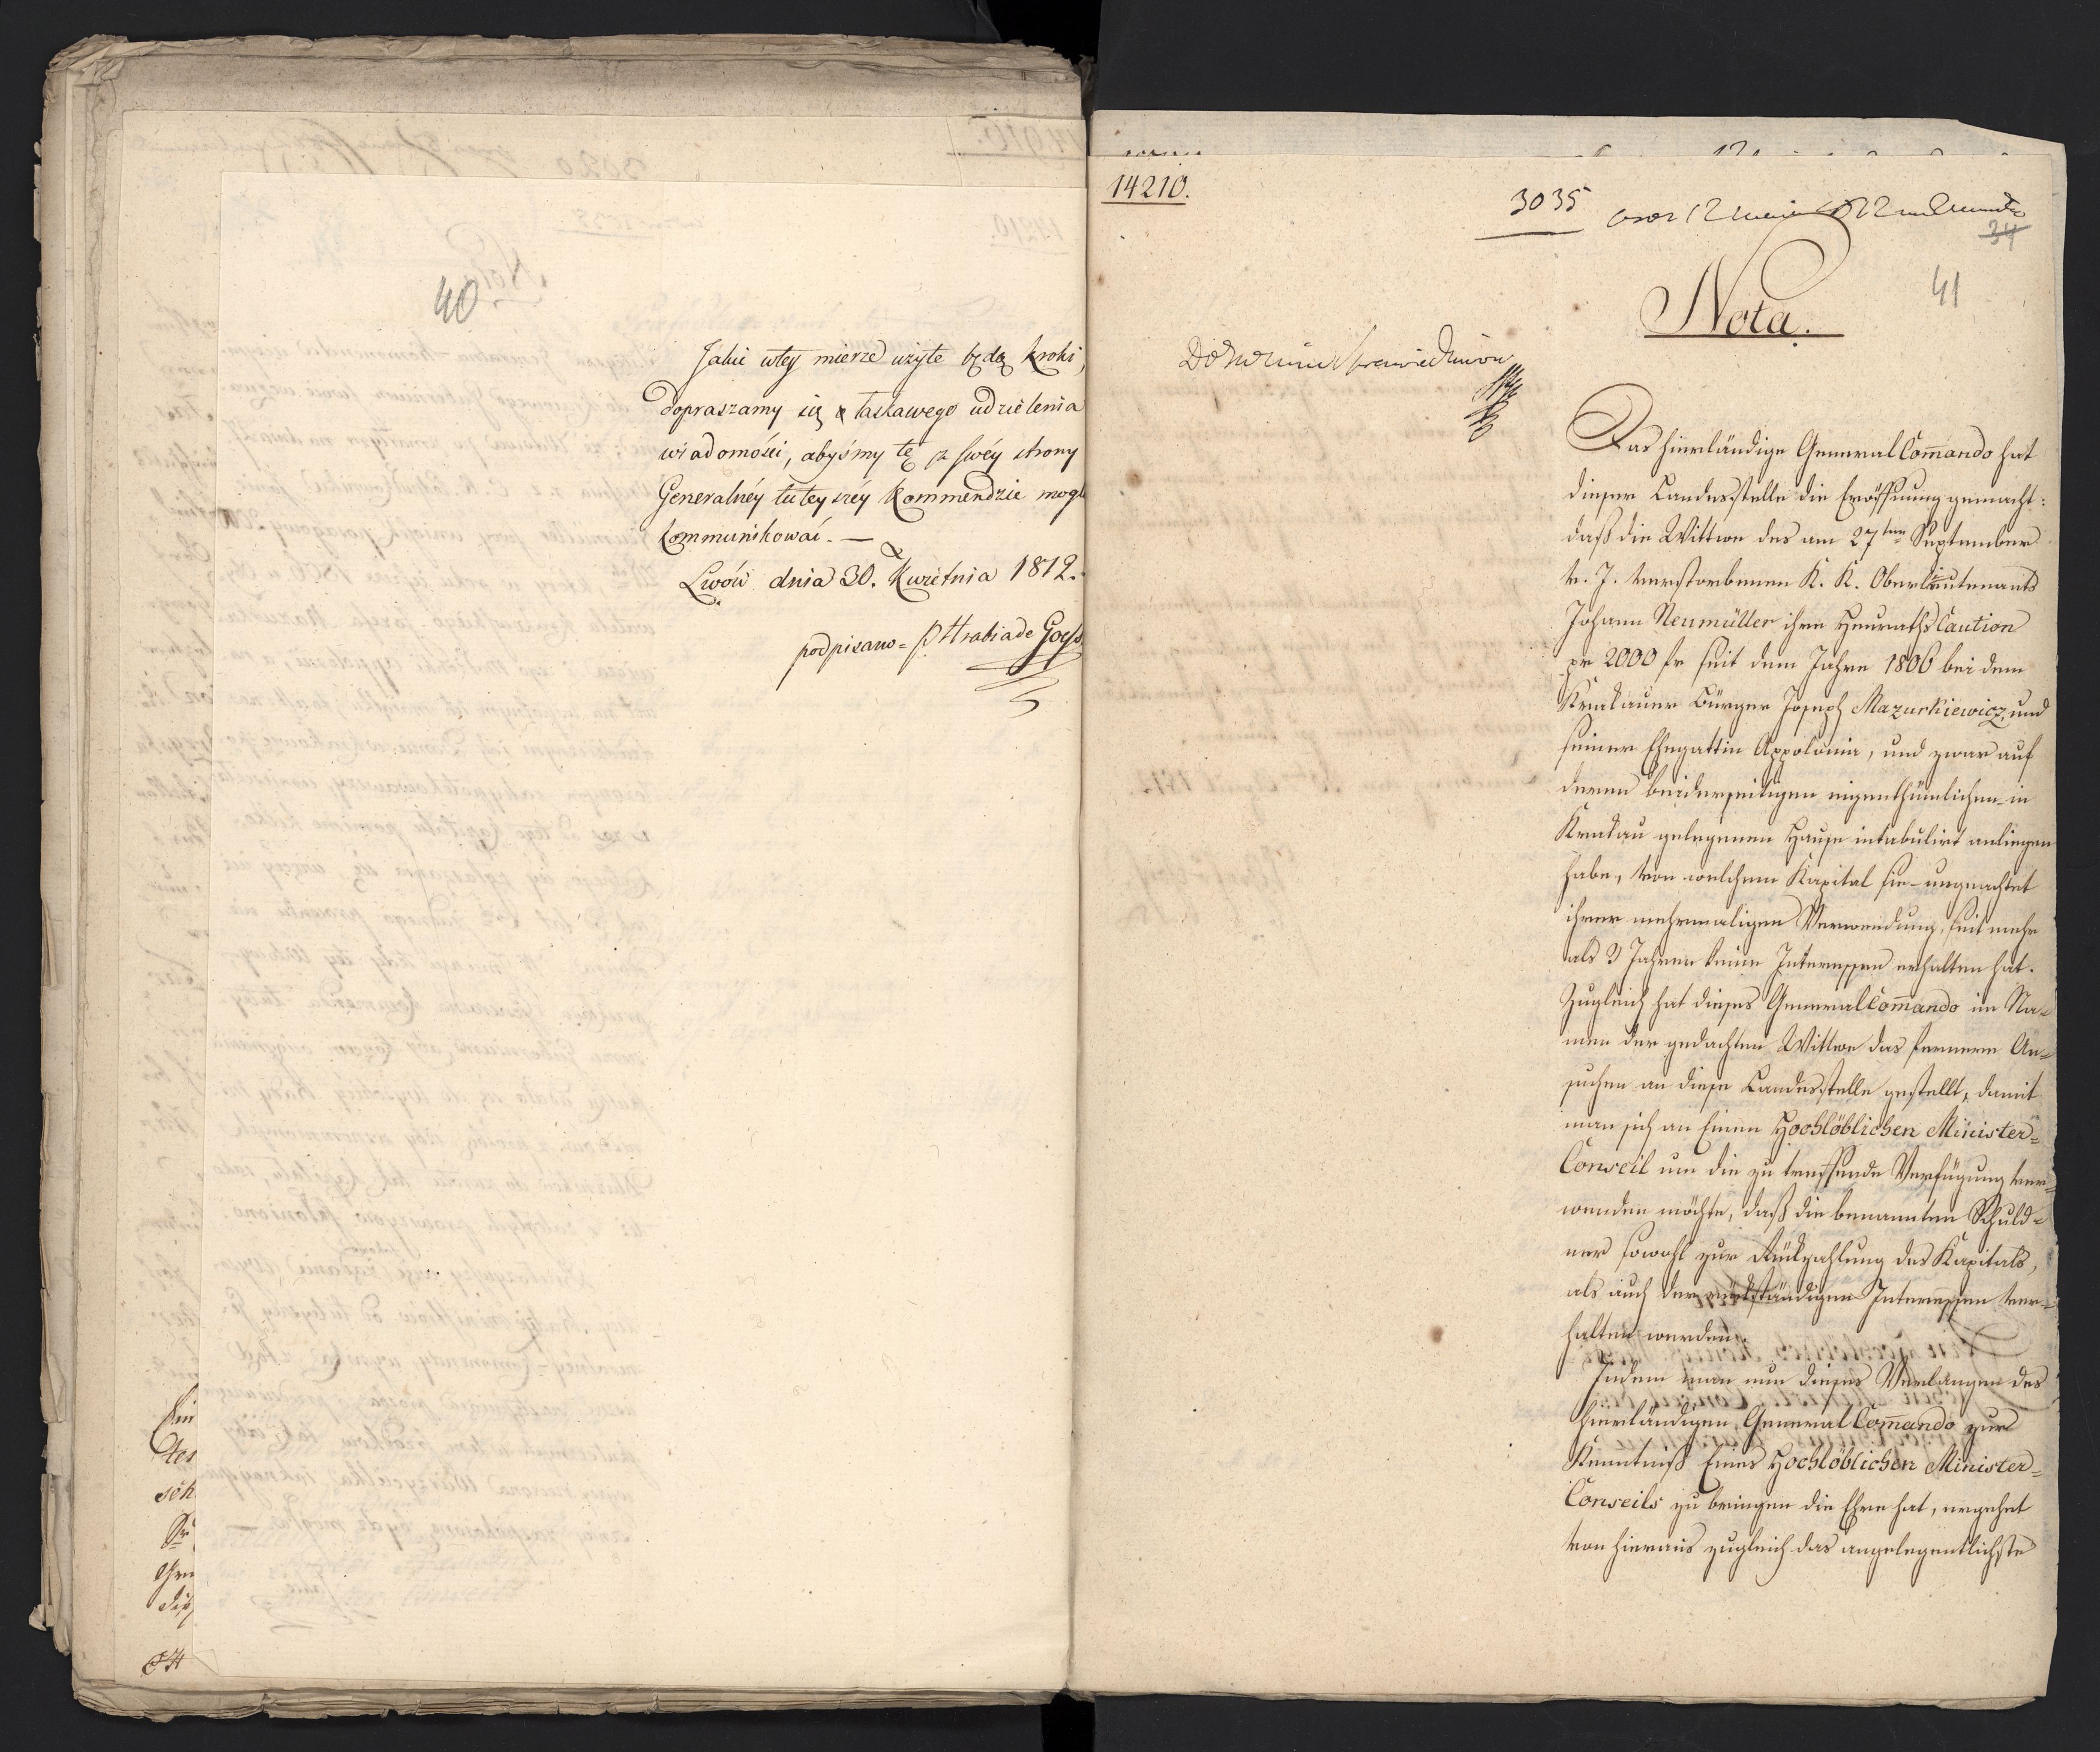 40
Jakie wtey mierze użyte będą kroki,
dopraszamy się łaskawego udzielenia
wiadomości, abyśmy tę z swéy strony
Generalnéy tuteyszéy Kommendzie mogli
kommunikować. —
Lwów dnia 30. Kwietnia 1812.
podpisano = P. Hrabia de Goess
14210.
3035
34
41
Nota.
Das hierländige General Com̄ando hat
dieser Landesstelle die Eröffnung gemacht:
daß die Wittwe des am 27ten September
v. J. verstorbenen K. K. Oberlieutenants
Johann Neumüller ihre Heuraths Caution
pr 2000 fr seit dem Jahre 1806 bei dem
Krakauer Bürger Joseph Mazurkiewicz, und
seiner Ehegattin Appolonia, und zwar auf
deren beiderseitigen eigenthümlichen in
Krakau gelegenen Hause intabulirt anliegen
habe, von welchem Kapital sie ungeachtet
ihrer mehrmaligen Verwendung, seit mehr
als 3 Jahren keine Interessen erhalten hat.
Zugleich hat dieses General Com̄ando im Na=
men der gedachten Wittwe das fernere An=
suchen an diese Landesstelle gestellt, damit
man sich an Einen Hochlöblichen Minister=
Conseil um die zu treffende Verfügung ver=
wenden möchte, daß die benannten Schuld=
ner sowohl zur Rükzahlung des Kapitals,
als auch der rükständigen Interessen ver=
halten werden.
Indem man nun dieses Verlangen des
hierländigen General Com̄ando zur
Kenntniß Eines Hochlöblichen Minister=
Conseils zu bringen die Ehre hat, ergehet
von hieraus zugleich das angelegentlichste